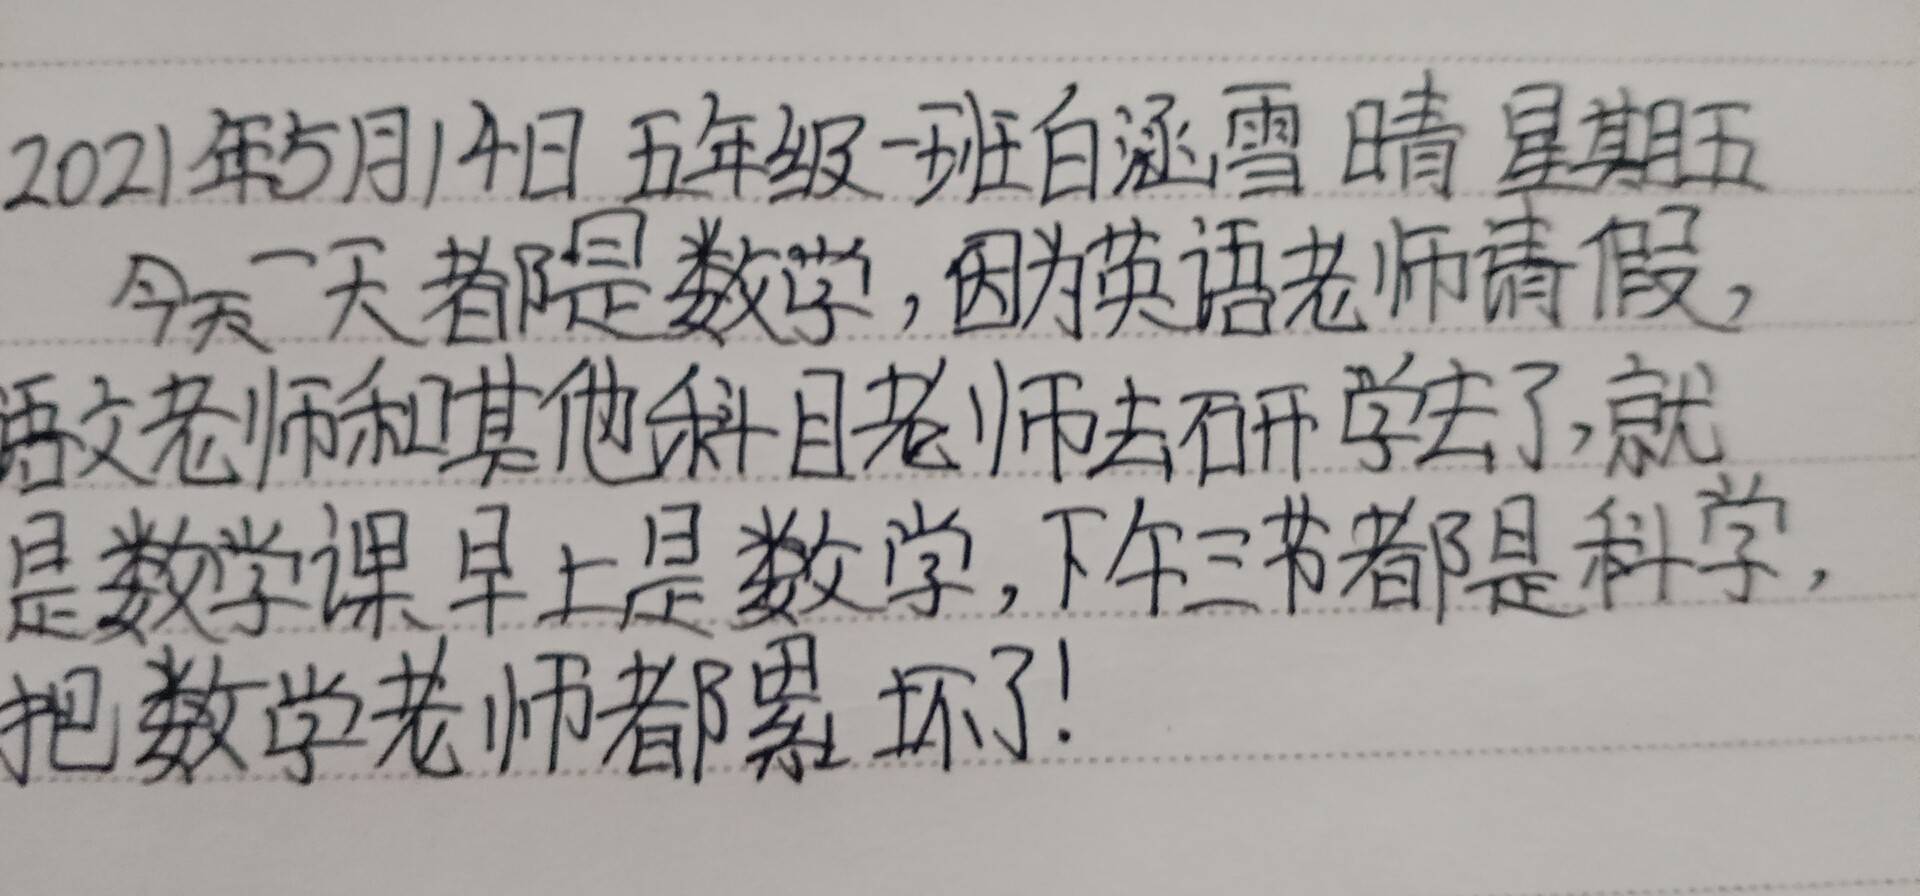 2021年5月14日 五年级一班白涵雪 晴 星期五
今天一天都是数学,因为英语老师请假,
语文老师和其他科目老师去研学去了,就
是数学课早上是数学,下午三节都是科学,
把数学老师都累坏了!